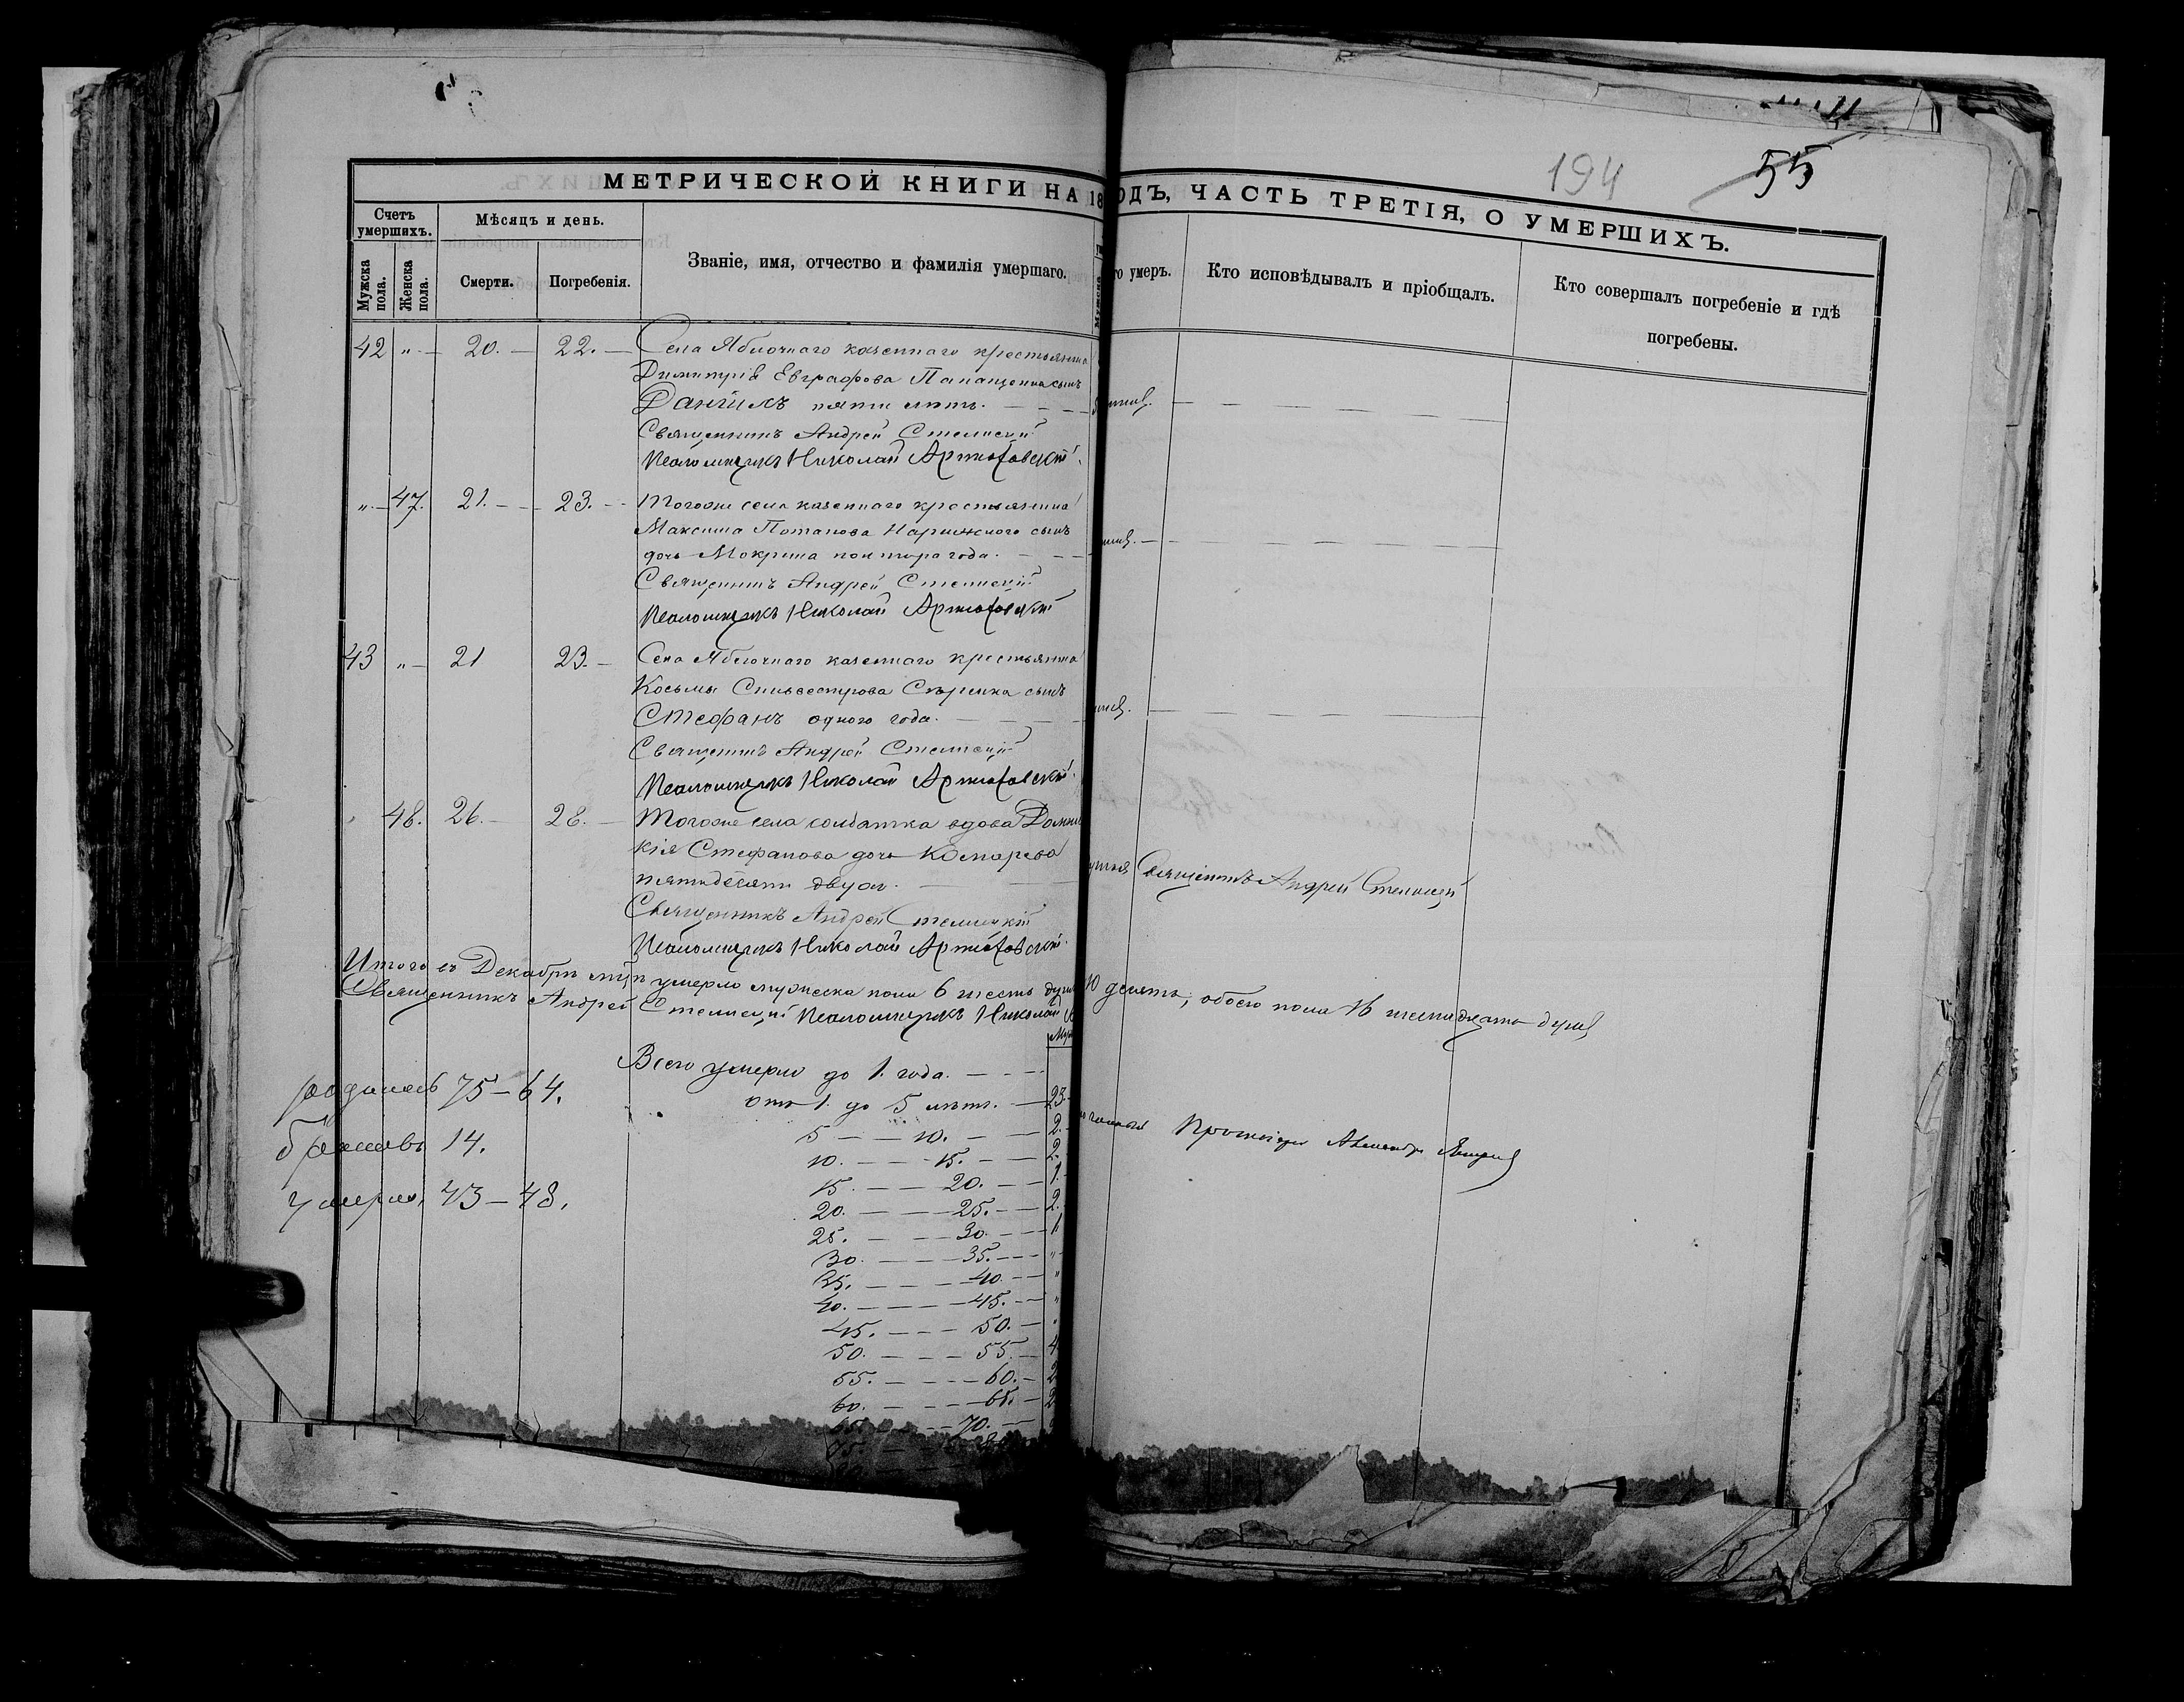 194
55
МЕТРИЧЕСКОЙ КНИГИ НА 18 ОДЪ, ЧАСТЬ ТРЕТІЯ, О УМЕРШИХЪ.
Счетъ умершихъ.
Мѣсяцъ и день.
Званіе, имя, отчество и фамилія умершаго.
го умеръ.
Кто исповѣдывалъ и пріобщалъ.
Кто совершалъ погребеніе и гдѣ
погребены.
Мужска пола.
Женска пола.
Смерти.
Погребенія.
42 " — 20. — 22. — Села Яблочнаго казеннаго крестьянина
Димитрія Евграфова сынъ
Даніилъ пяти лѣтъ. — — —
Священникъ Андрей
Псаломщикъ Николай Артюховскій.
" — 47. 21. — — 23. — Тогоже села казеннаго крестьянина
Максима Потапова Нарижного сынъ
дочь Мокрина полтора года. — — —
Священникъ Андрей
Псаломщикъ Николай Артюховскій
43 " — 21 23. — Села Яблочнаго казеннаго крестьянина
Косьмы Сильвестрова сынъ
Стефанъ одного года. — — — —
Священникъ Андрей
Псаломщикъ Николай Артюховскій.
48. 26. — 28. — Тогоже села солдатка вдова
кія Стефанова дочь Комарева
пятидесяти двухъ. — —
Священникъ Андрей
Священникъ Андрей
Псаломщикъ Николай Артюховскій.
Итого въ Декабрѣ м-цѣ умерло мужеска пола 6 шесть душъ 10 десять, обоего пола 16 шестнадцать душъ
Священникъ Андрей Псаломщикъ Николай
Всего умерло до 1. года. — — —
родилось 75 – 64.
отъ 1. до 5 лѣтъ. — 23.
5 — — 10. — — 2.
браковъ 14.
Протоіерей
10. — — 15. — — 2.
15. — — 20. — — 1.
умерло 43 – 48.
20. — — 25. — 2.
25. — — 30. — — 1
30. — — 35. — — "
35. — — — 40. — "
40. — — — 45. — "
45. — — — 50. — "
50. — — — 55. — 4
55. — — — 60. — 2
60. — — — 65. — 2
65. — — 70. —